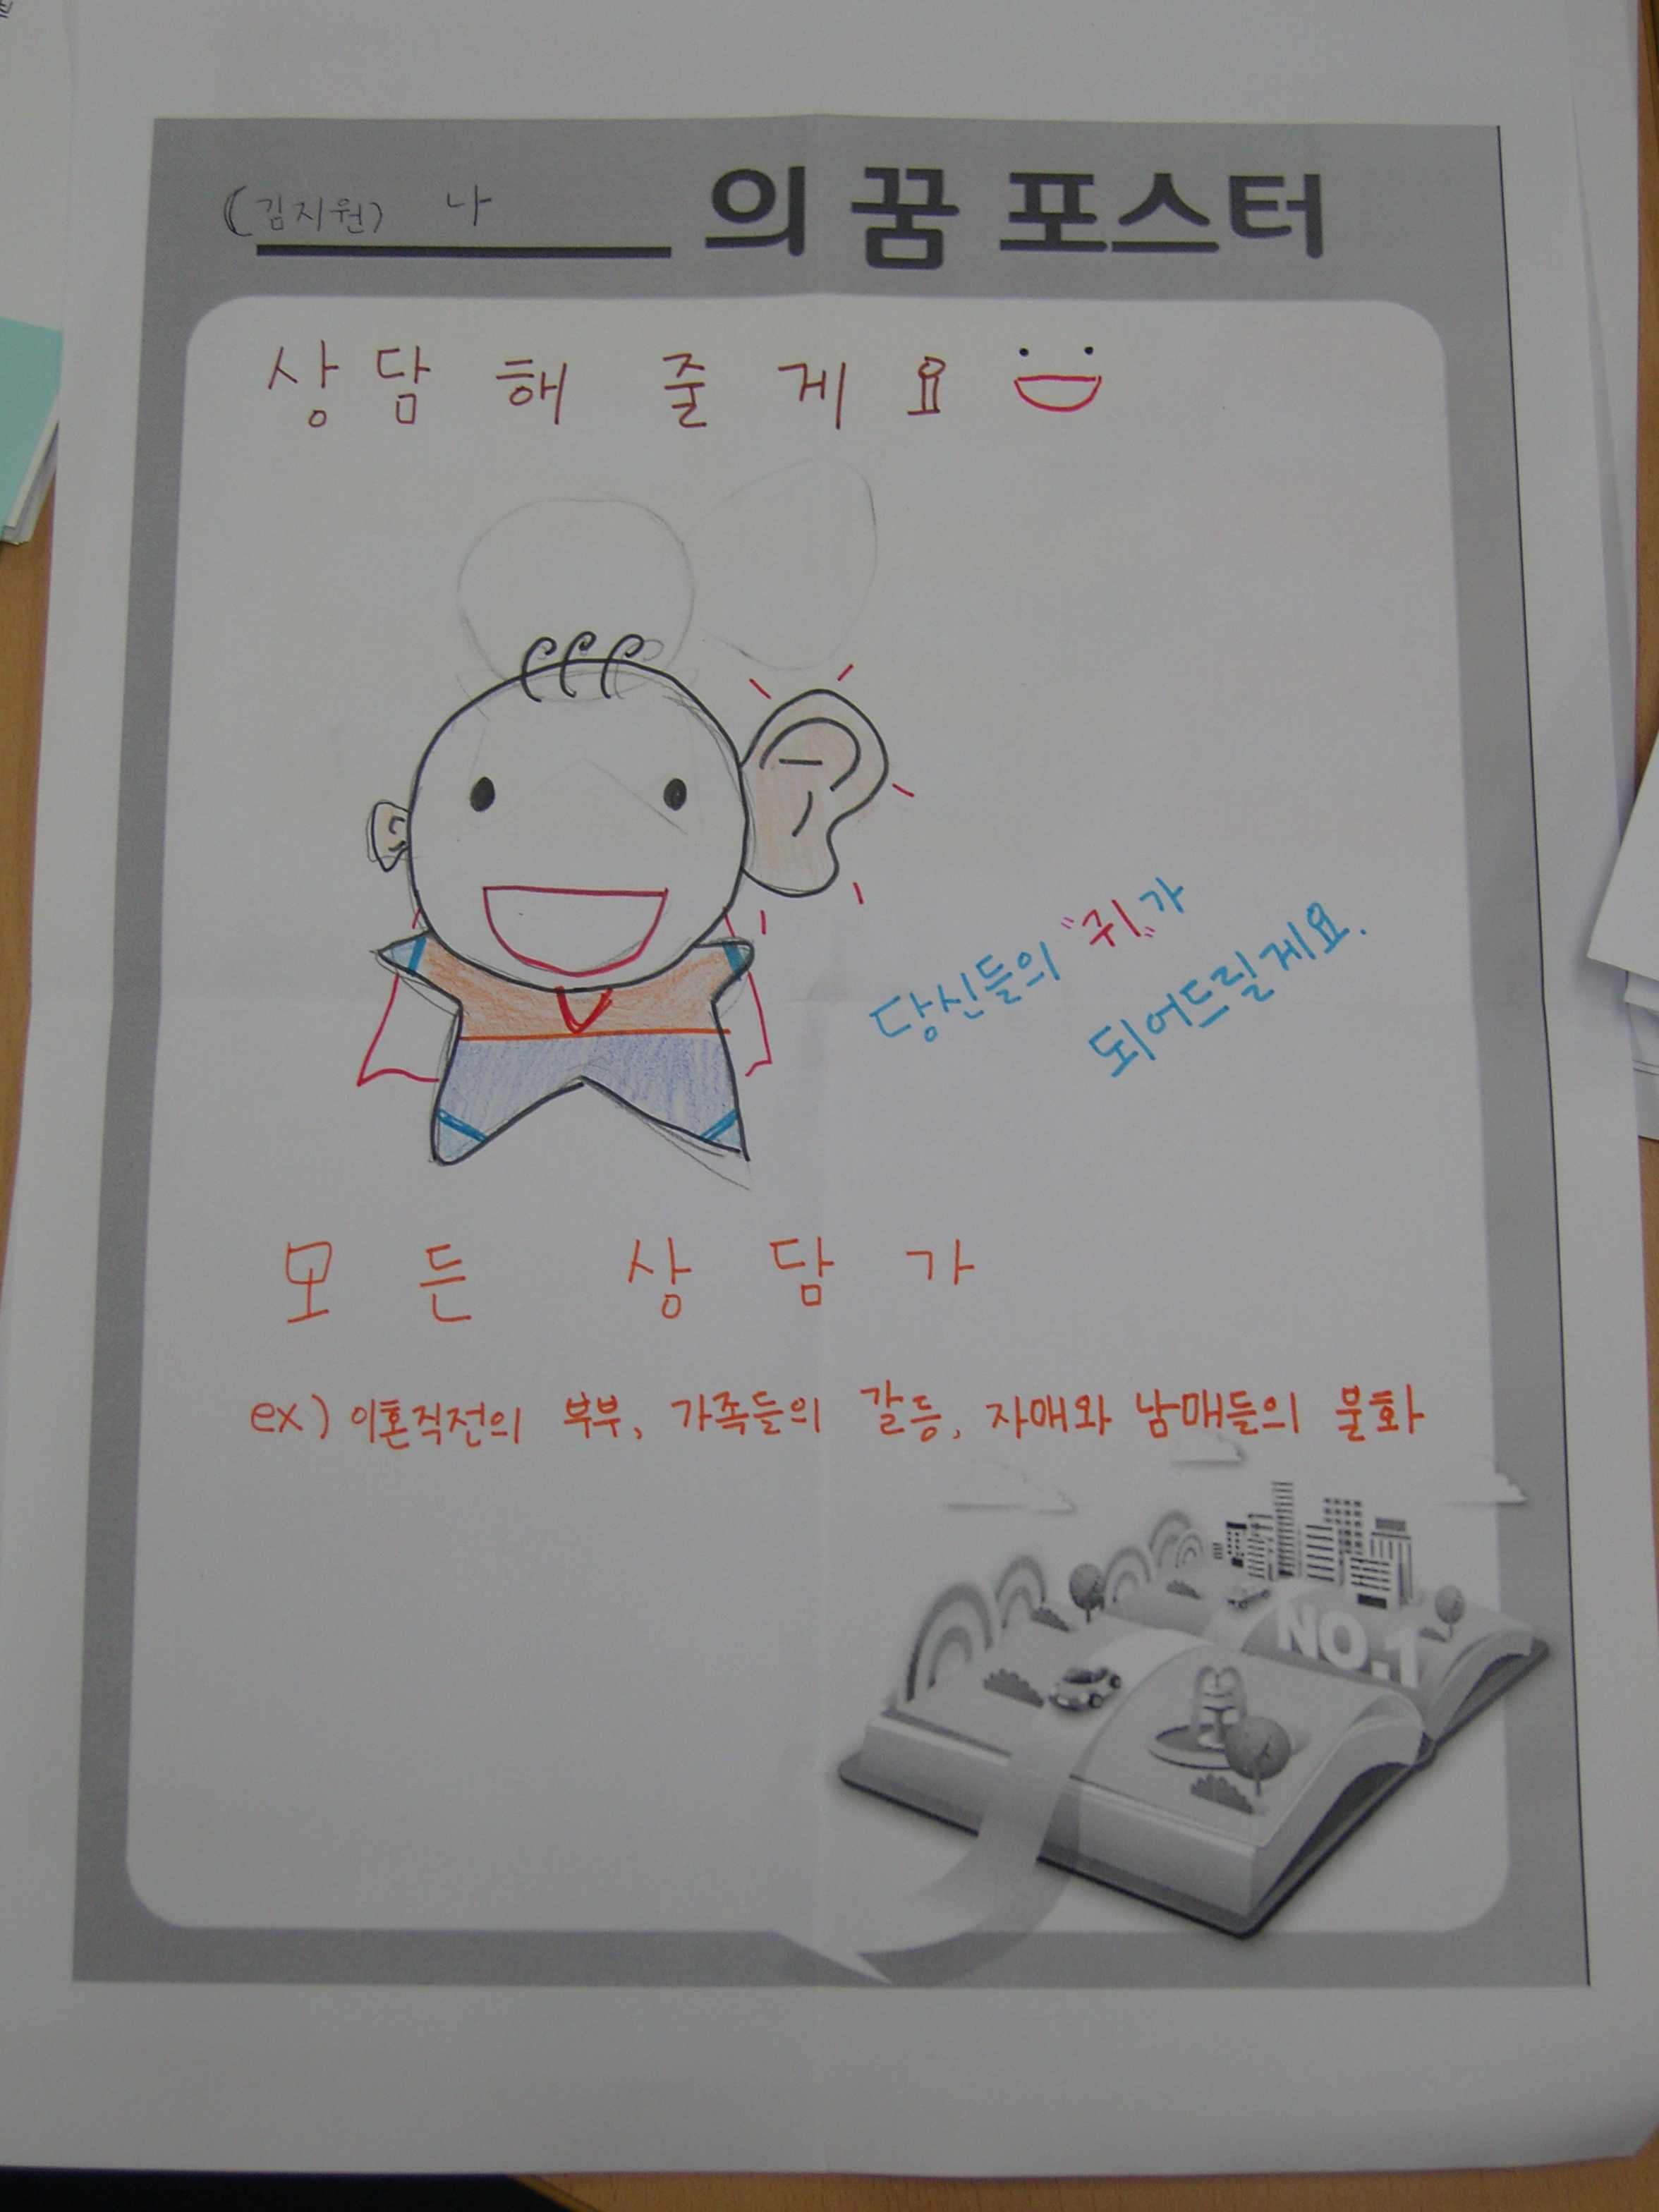 (김지원) 나 의 꿈 포스터
상담해 줄게요
당신들의 "귀"가
되어드릴게요.
모든 상담가
ex) 이혼직전의 부부, 가족들의 갈등, 자매와 남매들의 불화
NO.1